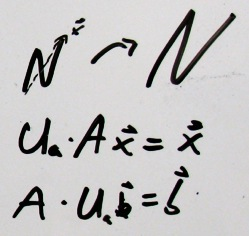 N x⃗ → N
Uₐ·A x⃗ = x⃗
A·Uₐ b⃗ = b⃗